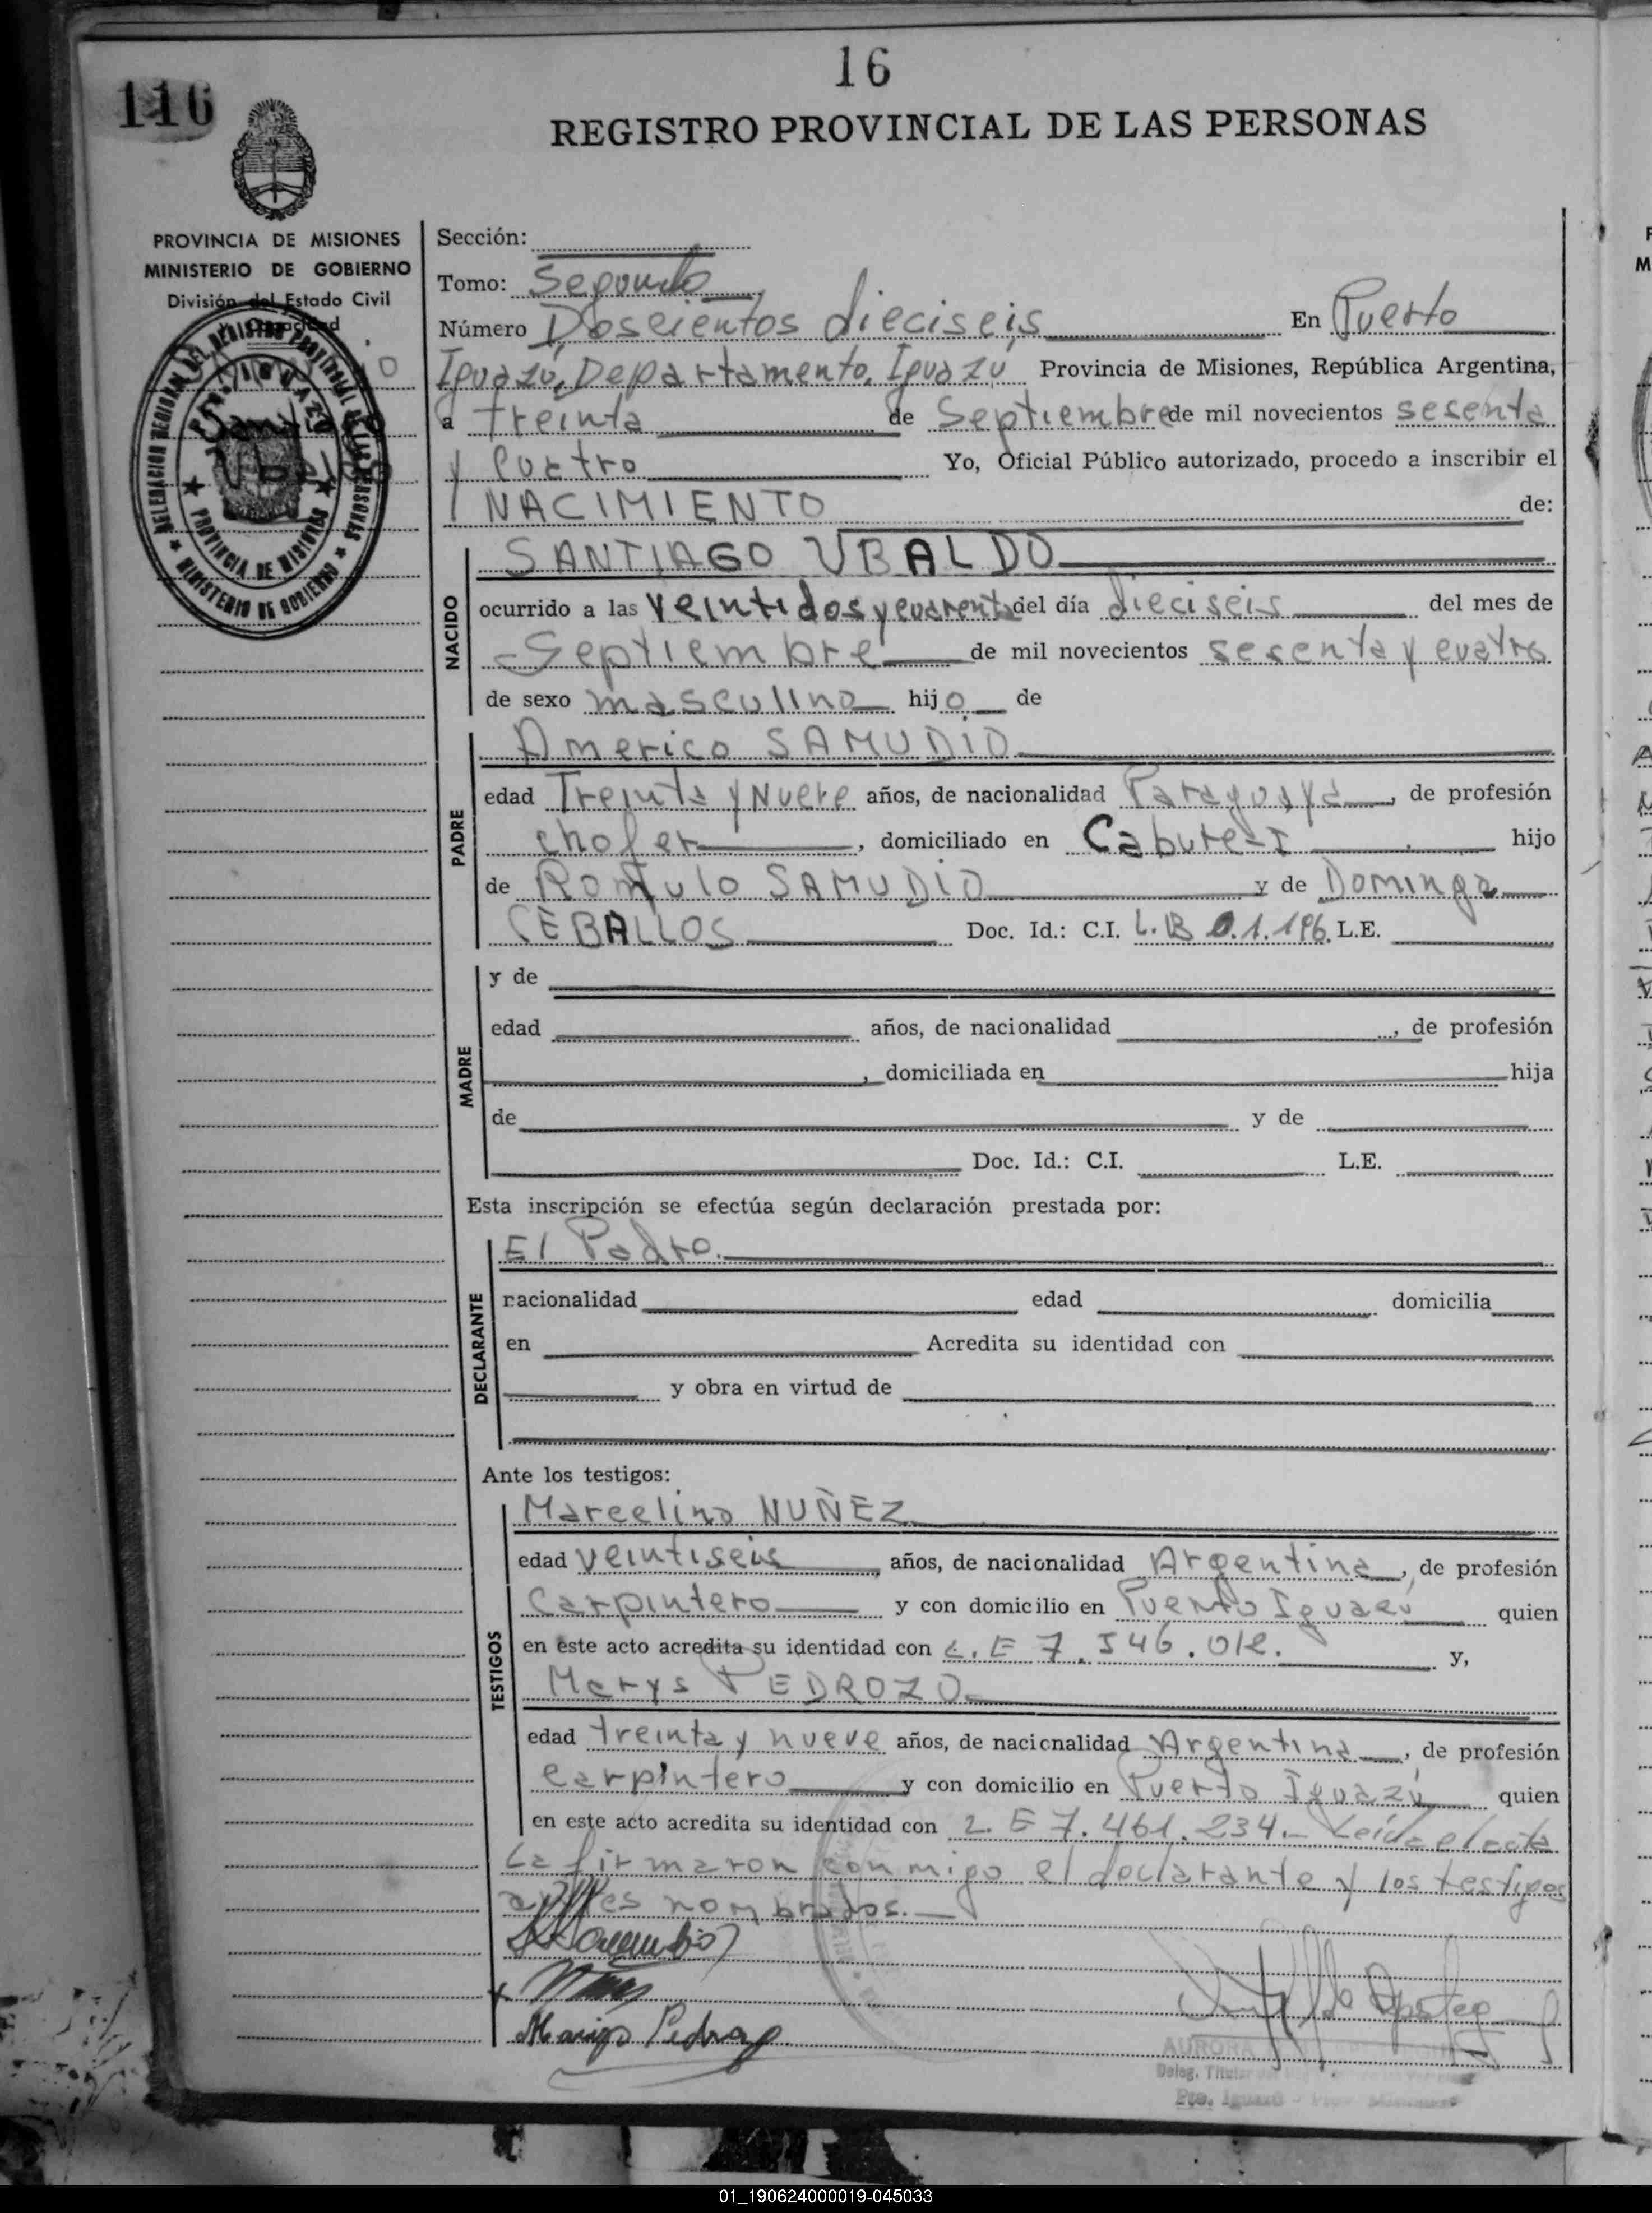 16
116
REGISTRO PROVINCIAL DE LAS PERSONAS
PROVINCIA DE MISIONES
MINISTERIO DE GOBIERNO
División del Estado Civil
DELEGACION REGIONAL DEL REGISTRO PROVINCIAL DE LAS PERSONAS
PROVINCIA DE MISIONES
MINISTERIO DE GOBIERNO
Sección:
Tomo: Segundo
Número Doscientos dieciseis En Puerto
Iguazú, Departamento, Iguazú Provincia de Misiones, República Argentina,
a treinta de Septiembre de mil novecientos sesenta
y cuatro Yo, Oficial Público autorizado, procedo a inscribir el
NACIMIENTO de:
NACIDO
SANTIAGO UBALDO
ocurrido a las veintidos y cuarenta del día dieciseis del mes de
Septiembre de mil novecientos sesenta y cuatro
de sexo masculino hijo de
PADRE
Americo SAMUDIO
edad Treinta y Nueve años, de nacionalidad Paraguaya, de profesión
chofer, domiciliado en Cabure-I hijo
de Romulo SAMUDIO y de Dominga
CEBALLOS Doc. Id.: C.I. L.B 0.1.196. L.E.
MADRE
y de
edad años, de nacionalidad , de profesión
, domiciliada en hija
de y de
Doc. Id.: C.I. L.E.
Esta inscripción se efectúa según declaración prestada por:
DECLARANTE
El Padre.
nacionalidad edad domicilia
en Acredita su identidad con
y obra en virtud de
Ante los testigos:
TESTIGOS
Marcelino NUÑEZ
edad veintiseis años, de nacionalidad Argentina, de profesión
Carpintero y con domicilio en Puerto Iguazu quien
en este acto acredita su identidad con L.E 7.546.012. y,
Merys PEDROZO
edad treinta y nueve años, de nacionalidad Argentina, de profesión
carpintero y con domicilio en Puerto Iguazú quien
en este acto acredita su identidad con L.E 7.461.234.- Leída el acta
La firmaron conmigo el declarante y los testigos
antes nombrados.
AURORA
Deleg. Titular
Pto. Iguazú
01_190624000019-045033